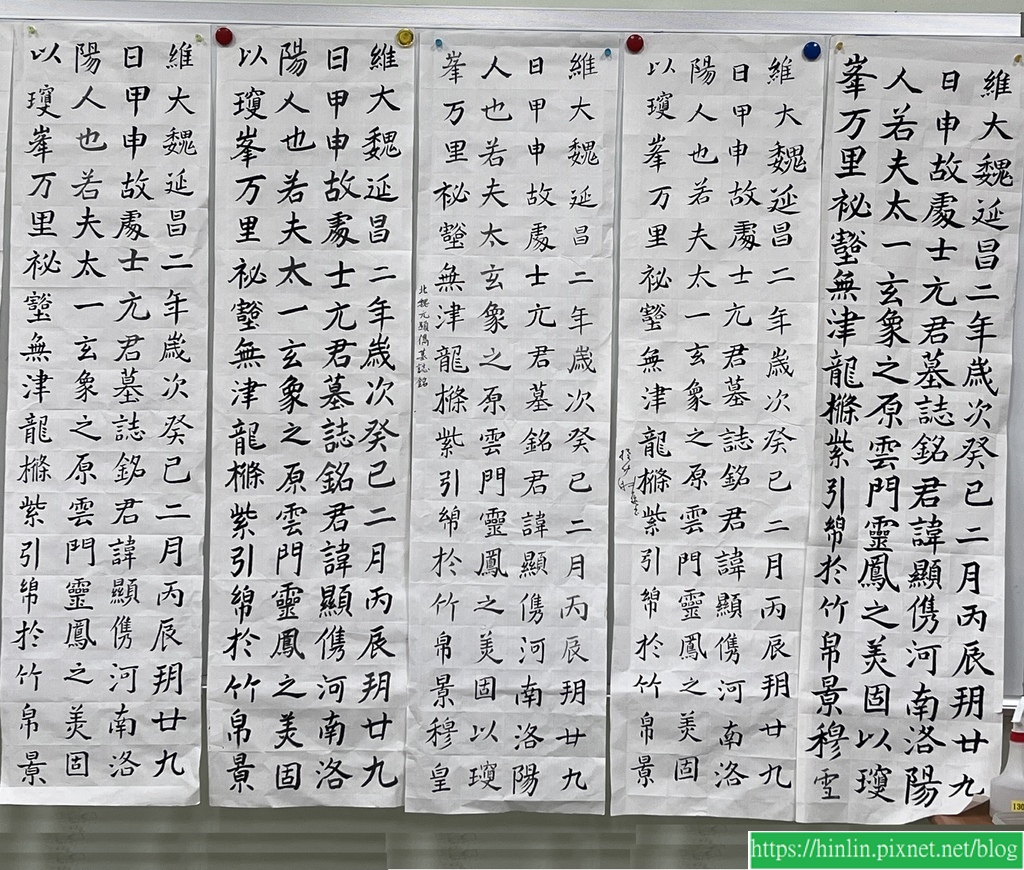 維大魏延昌二年歲次癸巳二月丙辰朔廿九
日申故處士元君墓誌銘君諱顯儁河南洛陽
人若夫太一玄象之原雲門靈鳳之美固以瓊
峯万里祕壑無津龍樤紫引綿於竹帛景穆雪
維大魏延昌二年歲次癸巳二月丙辰朔廿九
日甲申故處士元君墓誌銘君諱顯儁河南洛
陽人也若夫太一玄象之原雲門靈鳳之美固
以瓊峯万里祕壑無津龍樤紫引綿於竹帛景
維大魏延昌二年歲次癸巳二月丙辰朔廿九
日甲申故處士元君墓銘君諱顯儁河南洛陽
人也若夫太玄象之原雲門靈鳳之美固以瓊
峯万里祕壑無津龍樤紫引綿於竹帛景穆皇
北魏元顯儁墓誌銘
維大魏延昌二年歲次癸巳二月丙辰朔廿九
日甲申故處士元君墓誌銘君諱顯儁河南洛
陽人也若夫太一玄象之原雲門靈鳳之美固
以瓊峯万里祕壑無津龍樤紫引綿於竹帛景
維大魏延昌二年歲次癸巳二月丙辰朔廿九
日甲申故處士元君墓誌銘君諱顯儁河南洛
陽人也若夫太一玄象之原雲門靈鳳之美固
以瓊峯万里祕壑無津龍樤紫引綿於竹帛景
https://hinlin.pixnet.net/blog